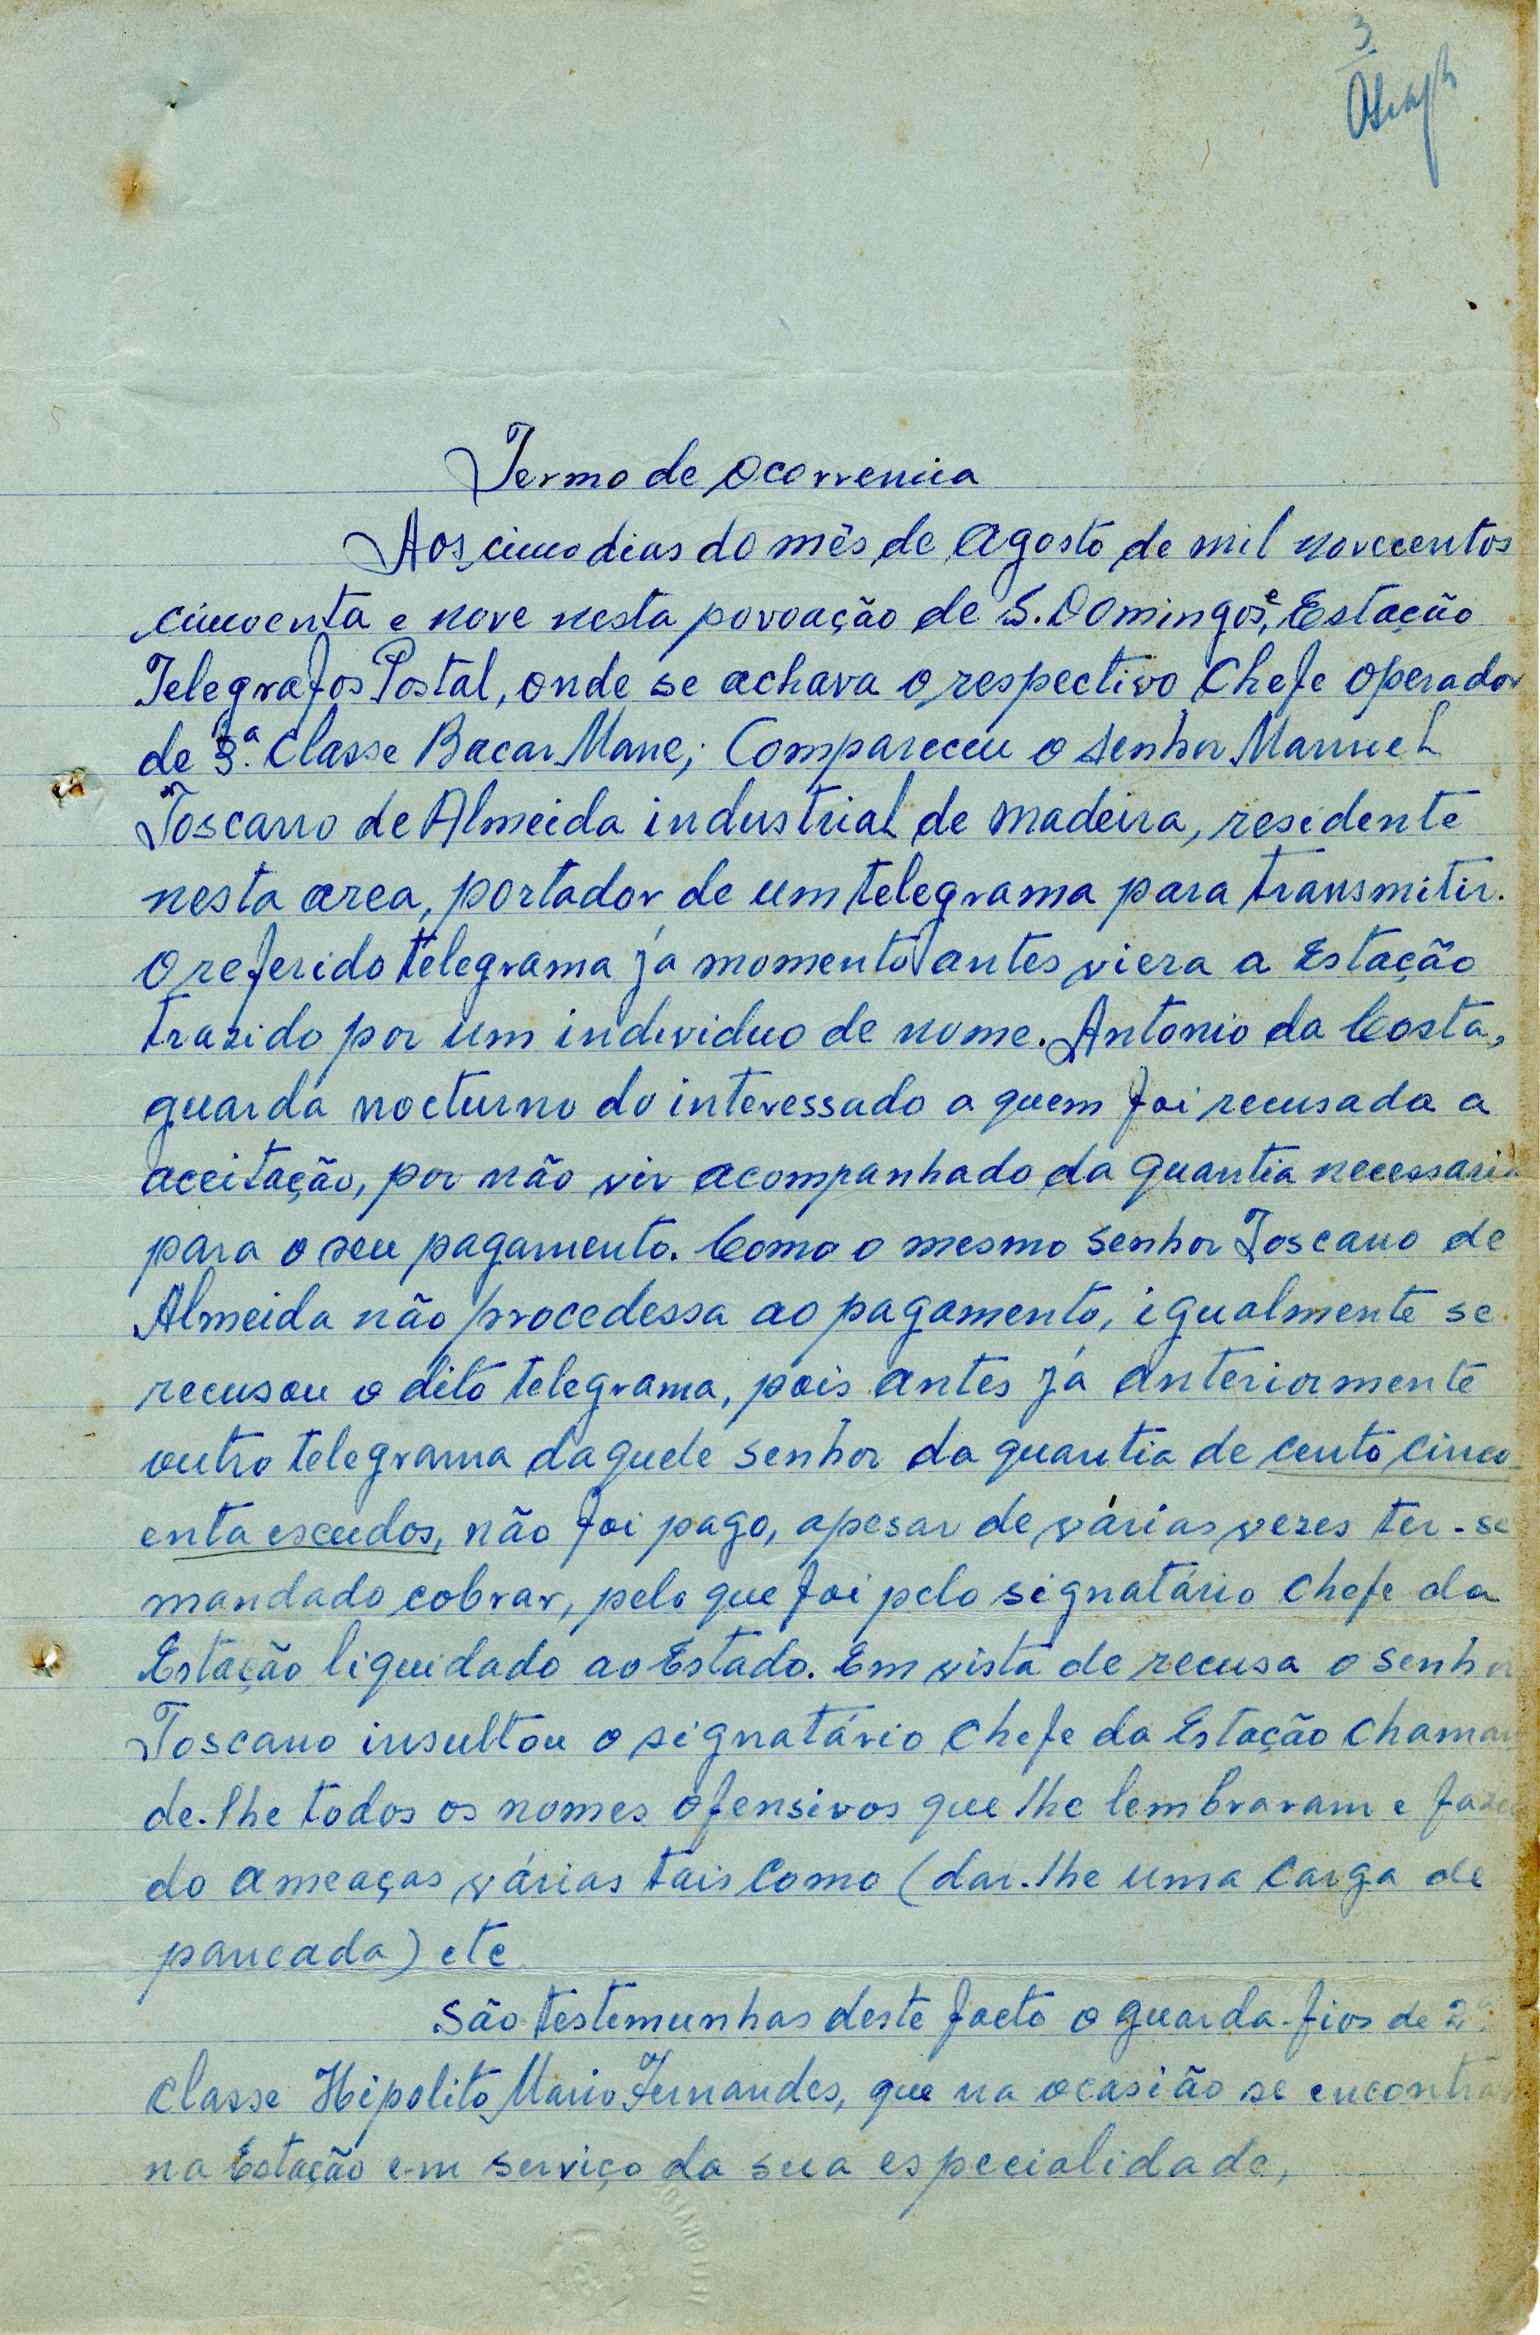 3
Termo de Ocorrencia
Aos cinco dias do mês de Agosto de mil novecentos
cincoenta e nove nesta povoação de S. Domingos, e Estação
Telegrafos Postal, onde se achava o respectivo Chefe operador
de 3.ª Classe Bacar Mane; Compareceu o senhor Manuel
Toscano de Almeida industrial de madeira, residente
nesta area, portador de um telegrama para transmitir.
O referido telegrama já momento antes viera a Estação
trazido por um individuo de nome. Antonio da Costa,
guarda nocturno do interessado a quem foi recusada a
aceitação, por não vir acompanhado da quantia necessaria
para o seu pagamento. Como o mesmo senhor Toscano de
Almeida não procedessa ao pagamento, igualmente se
recusou o dito telegrama, pois antes já anteriormente
outro telegrama daquele senhor da quantia de cento cinco-
enta escudos, não foi pago, apesar de várias vezes ter-se
mandado cobrar, pelo que foi pelo signatário chefe da
Estação liquidado ao Estado. Em vista de recusa o senhor
Toscano insultou o signatário chefe da Estação chaman
de-lhe todos os nomes ofensivos que lhe lembraram e fazen
do ameaças várias tais como (dar-lhe uma carga de
pancada) etc
São testemunhas deste facto o guarda-fios de 2ª
classe Hipolito Mario Fernandes, que na ocasião se encontra
na Estação em serviço da sua especialidade,